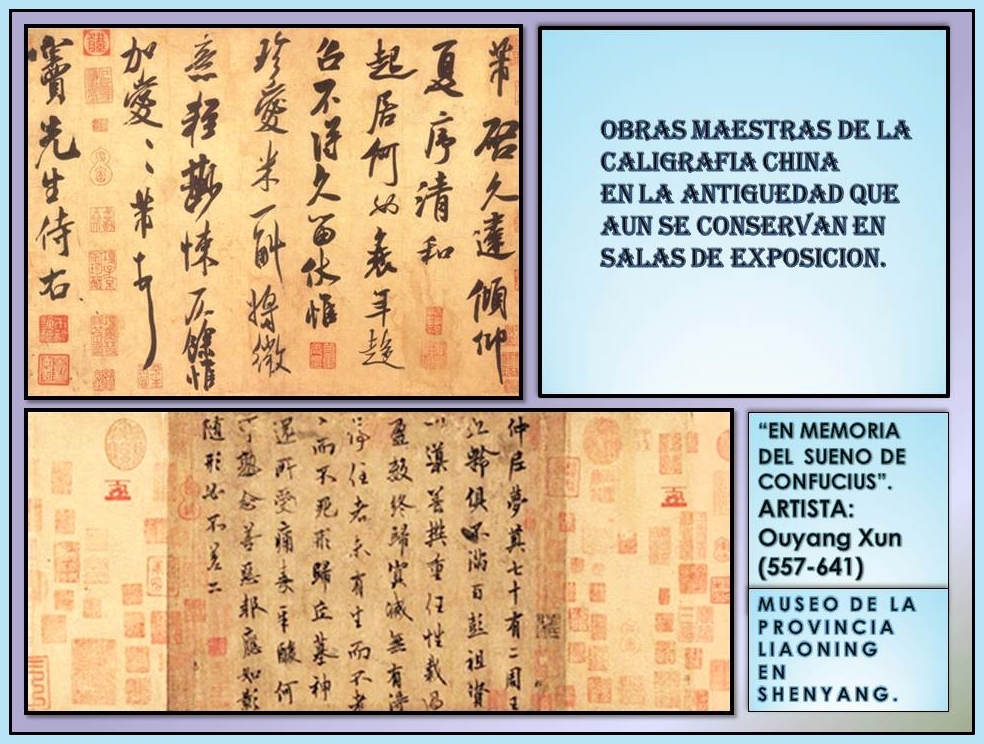 芾啓久違傾仰
夏序清和
起居何如衰年趨
召不得久留伏惟
珍愛米一斛將微
意輕尠悚仄餘惟
加愛〻芾頓首
竇先生侍右
OBRAS MAESTRAS DE LA
CALIGRAFIA CHINA
EN LA ANTIGUEDAD QUE
AUN SE CONSERVAN EN
SALAS DE EXPOSICION.
仲尼夢奠七十有二周王
九齡俱不滿百彭祖資
以導養樊重任性裁過
盈數終歸冥滅無有得
停住者未有生而不老
〻而不死形歸丘墓神
還所受痛毒辛酸何
可熟念善惡報應如影
随形必不差二
“EN MEMORIA
DEL SUENO DE
CONFUCIUS”.
ARTISTA:
Ouyang Xun
(557-641)
MUSEO DE LA
PROVINCIA
LIAONING
EN
SHENYANG.